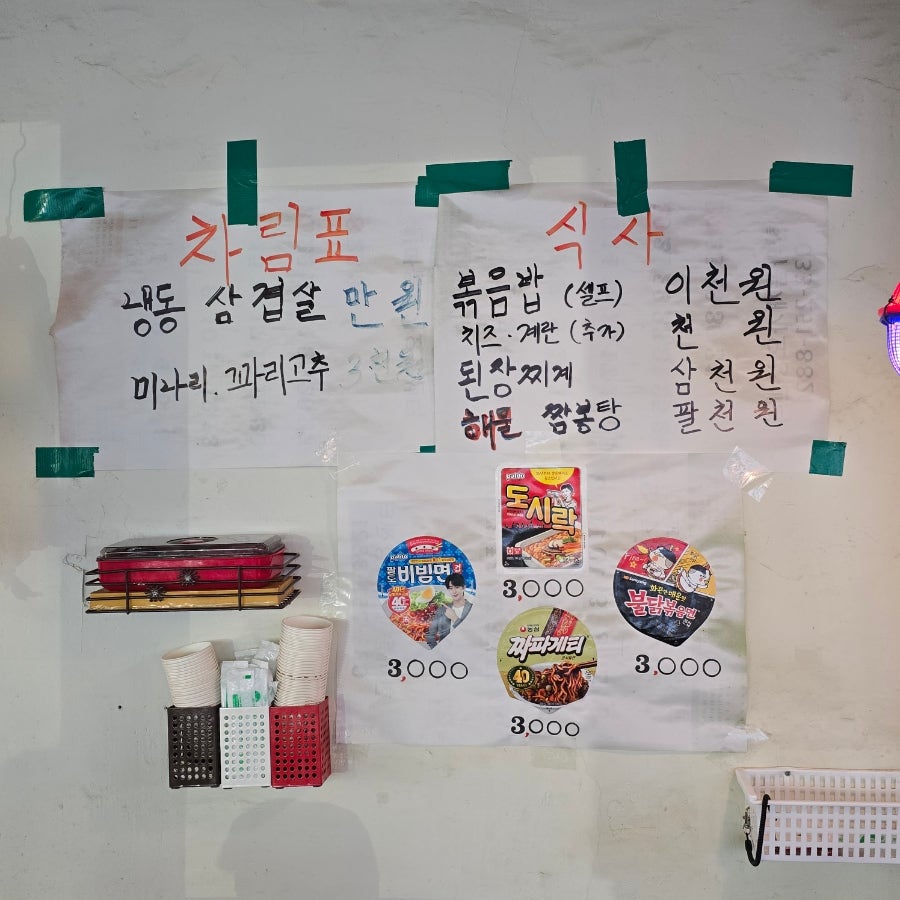 차림표
냉동 삼겹살 만 원
미나리. 꽈리고추 3천원
식사
볶음밥 (셀프) 이천원
치즈·계란 (추가) 천 원
된장찌개 삼천원
해물 짬뽕탕 팔천원
paldo
도시락
3,000
paldo
팔도
비빔면 컵
40
3,000
Samyang
화끈하게 매운맛
불닭볶음면
3,000
농심
짜파게티
40
3,000